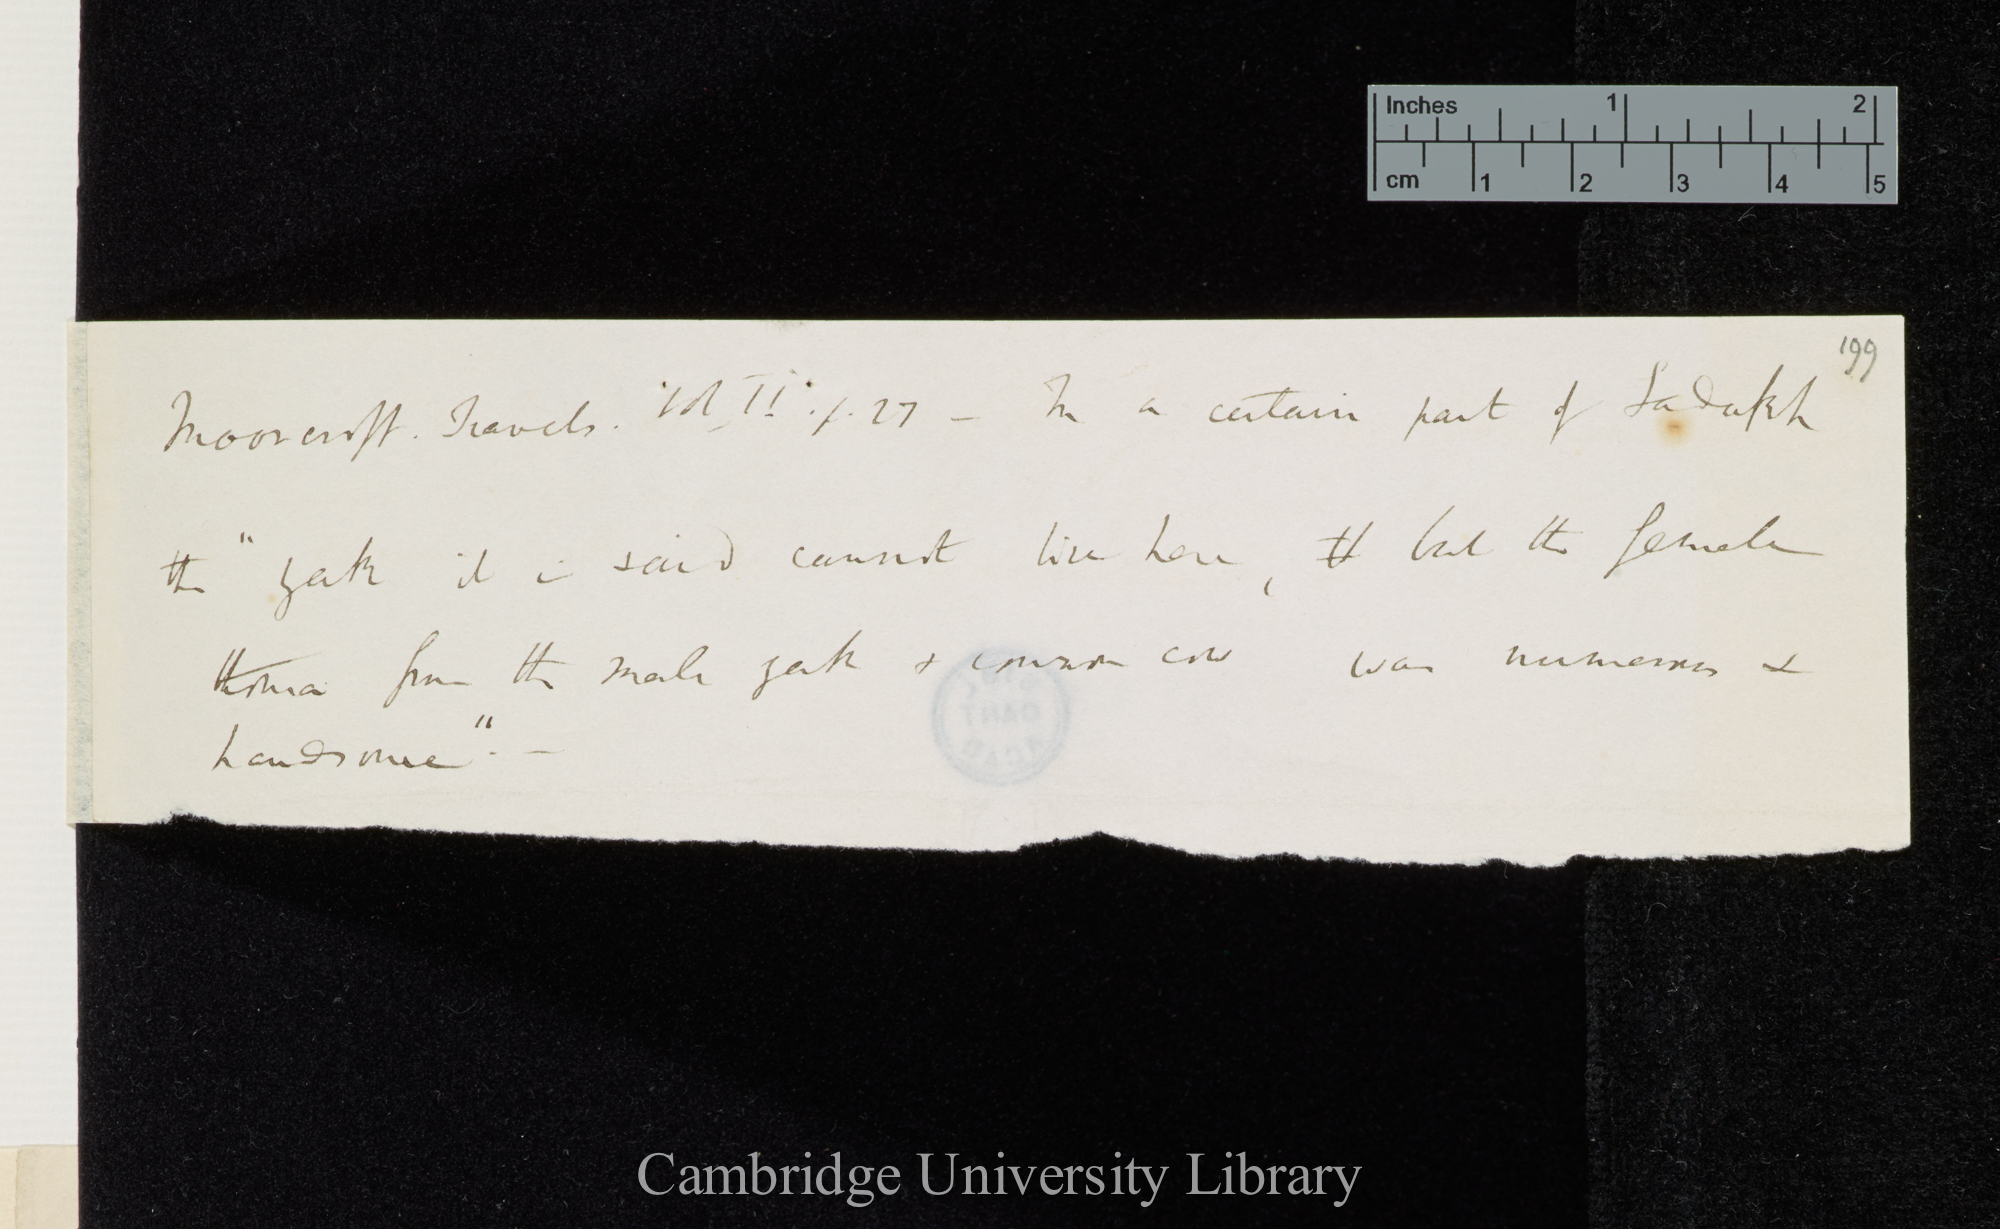 Inches 1 2
cm 1 2 3 4 5
199
Moorcroft. Travels. Vol II. p. 27 — In a certain part of Ladakh
the "yak it is said cannot live here, but the female
from the male yak & common cow was numerous &
handsome". —
Cambridge University Library